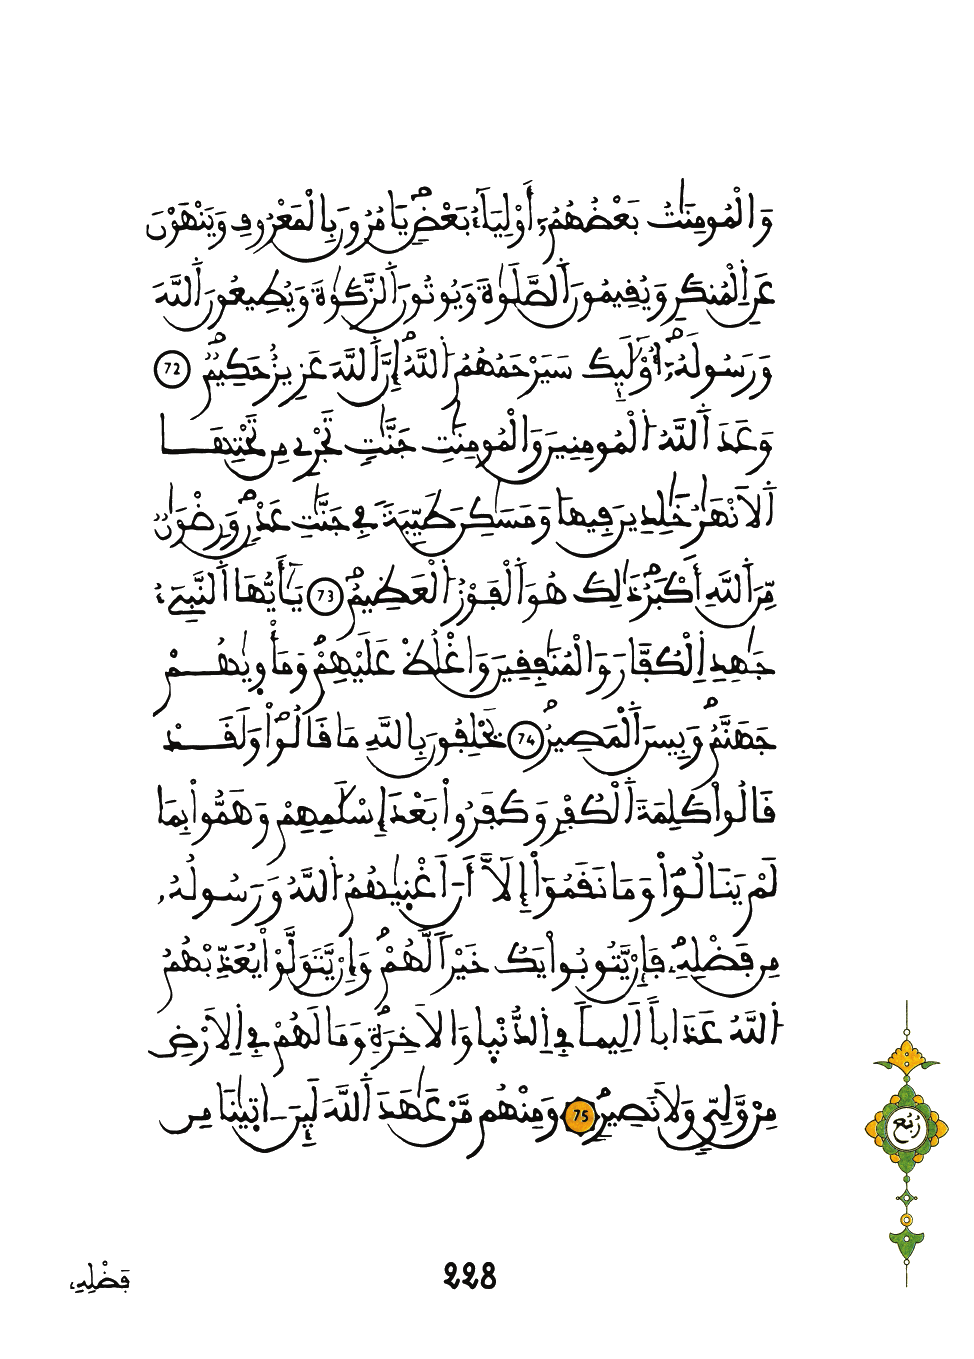 وَالْمُومِنَٰتُ بَعْضُهُمُۥٓ أَوْلِيَآءُ بَعْضٖ يَامُرُونَ بِالْمَعْرُوفِ وَيَنْهَوْنَ
عَنِ اِلْمُنكَرِ وَيُقِيمُونَ اَلصَّلَوٰةَ وَيُوتُونَ اَلزَّكَوٰةَ وَيُطِيعُونَ اَللَّهَ
وَرَسُولَهُۥٓ أُوْلَٰٓئِكَ سَيَرْحَمُهُمُ اُللَّهُۖ إِنَّ اَللَّهَ عَزِيزٌ حَكِيمٞۖ 72
وَعَدَ اَللَّهُ اُلْمُومِنِينَ وَالْمُومِنَٰتِ جَنَّٰتٖ تَجْرِے مِن تَحْتِهَا
اَلَانْهَٰرُ خَٰلِدِينَ فِيهَا وَمَسَٰكِنَ طَيِّبَةٗ فِے جَنَّٰتِ عَدْنٖۖ وَرِضْوَٰنٞ
مِّنَ اَللَّهِ أَكْبَرُۖ ذَٰلِكَ هُوَ اَلْفَوْزُ اُلْعَظِيمُۖ 73 يَٰٓأَيُّهَا اَلنَّبِےٓءُ
جَٰهِدِ اِلْكُفَّارَ وَالْمُنَٰفِقِينَ وَاغْلُظْ عَلَيْهِمْۖ وَمَأْوِيٰهُمْ
جَهَنَّمُۖ وَبِيسَ اَلْمَصِيرُۖ 74 يَحْلِفُونَ بِاللَّهِ مَا قَالُواْۖ وَلَقَدْ
قَالُواْ كَلِمَةَ اَلْكُفْرِ وَكَفَرُواْ بَعْدَ إِسْلَٰمِهِمْ وَهَمُّواْ بِمَا
لَمْ يَنَالُواْۖ وَمَا نَقَمُوٓاْ إِلَّآ أَنَ اَغْنۭيٰهُمُ اُللَّهُ وَرَسُولُهُۥ
مِن فَضْلِهِۦۖ فَإِنْ يَّتُوبُواْ يَكُ خَيْراٗ لَّهُمْۖ وَإِنْ يَّتَوَلَّوْاْ يُعَذِّبْهُمُ
اُللَّهُ عَذَاباً اَلِيماٗ فِے اِلدُّنْي۪ا وَالَاخِرَةِۖ وَمَا لَهُمْ فِے اِلَارْضِ
مِنْ وَّلِيّٖ وَلَا نَصِيرٖۖ 75 وَمِنْهُم مَّنْ عَٰهَدَ اَللَّهَ لَئِنَ اٰتۭيٰنَا مِن
رُبُع
فَضْلِهِۦ
228